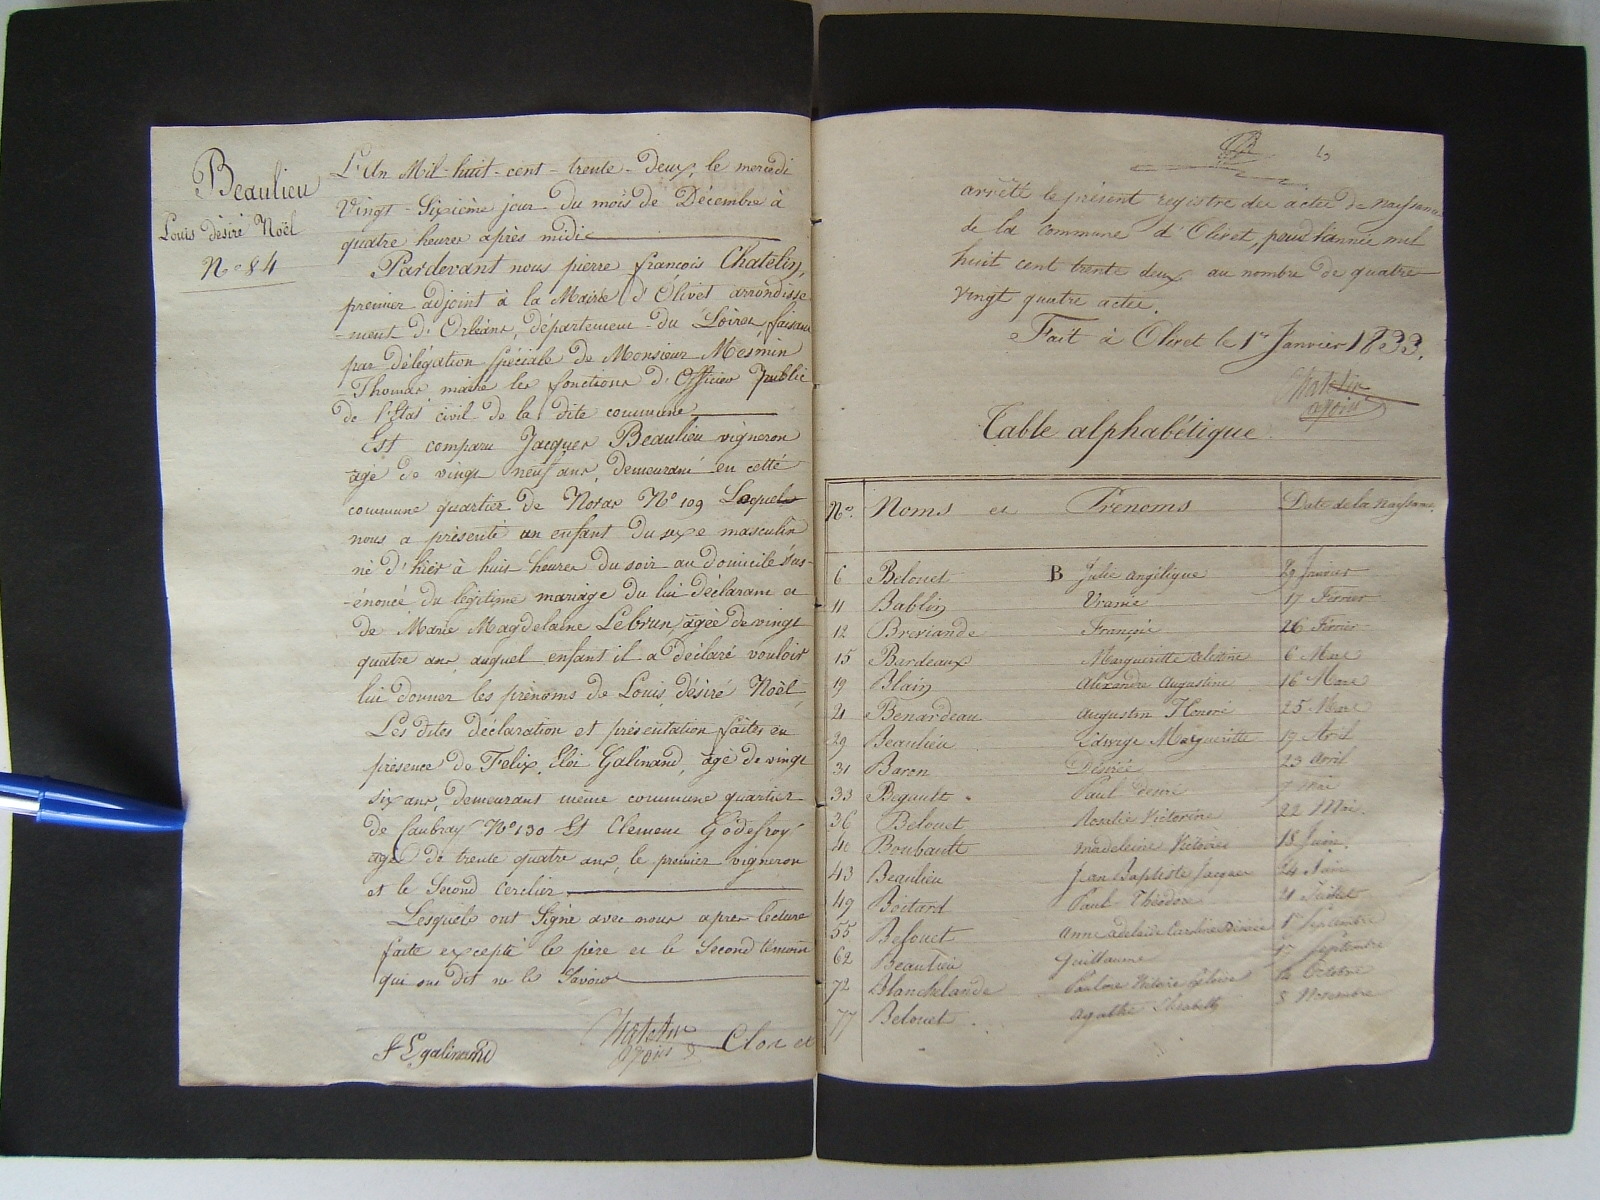 Beaulieu
Louis désiré Noël
N° 84
L'An Mil-huit-cent-trente-deux, le mercredi
Vingt-Sixième jour du mois de Décembre à
quatre heures après midi
Pardevant nous pierre françois Chatelin,
premier adjoint à la Mairie d'Olivet arrondisse
-ment d'Orléans, département du Loiret, faisant
par délégation spéciale de Monsieur Mesmin
Thomas maire les fonctions d'Officier Public
de l'Etat civil de la dite commune
Est comparu Jacques Beaulieu vigneron
âgé de vingt neuf ans, demeurant en cette
commune quartier de Noras N° 109 Lequel
nous a présenté un enfant du sexe masculin
né d'hier à huit heures du soir au domicile sus-
-énoncé, du légitime mariage du lui déclarant et
de Marie Magdelaine Lebrun, âgée de vingt
quatre ans, auquel enfant il a déclaré vouloir
lui donner les prénoms de Louis, désiré Noël,
Les dites déclaration et présentation faites en
présence de Felix, Eloi Galinand, âgé de vingt
six ans, demeurant même commune quartier
de Caubray N° 130 Et Clement Godefroy
âgé de trente quatre ans, le premier vigneron
et le Second cerclier
Lesquels ont Signé avec nous après lecture
faite excepté le père et le Second témoin
qui ont dit ne le Savoir
F E galinand
Chatelin
adjoint
Clos et
arrêté le présent registre des actes de Naissance
de la commune d'Olivet, pour l'année mil
huit cent trente deux au nombre de quatre
vingt quatre actes.
Fait à Olivet le 1er Janvier 1833.
Chatelin
adjoint
Table alphabétique
N° Noms et Prénoms Date de la Naissance
B
6 Belouet Julie angélique 29 Janvier
11 Bablin Uranie 17 Février
12 Breviande François 26 Février
15 Burdeaux Margueritte 6 Mars
19 Blain Alexandre Augustine 16 Mars
21 Benardeau Augustin Honoré 25 Mars
29 Beaulieu Edwige Margueritte 19 Avril
31 Baron Désirée 23 Avril
33 Begault Paul Desiré 7 Mai
36 Belouet Rosalie Victorine 22 Mai
40 Boubault Madeleine Victoire 18 Juin
43 Beaulieu Jean Baptiste Jacques 24 Juin
49 Boitard Paul Théodore 21 Juillet
55 Belouet Anne adelaide Caroline Désirée 1er Septembre
62 Beaulieu Guillaume 17 Septembre
72 Blanchelande Pauline Victoire 12 Octobre
77 Belouet Agathe Elisabeth 8 Novembre